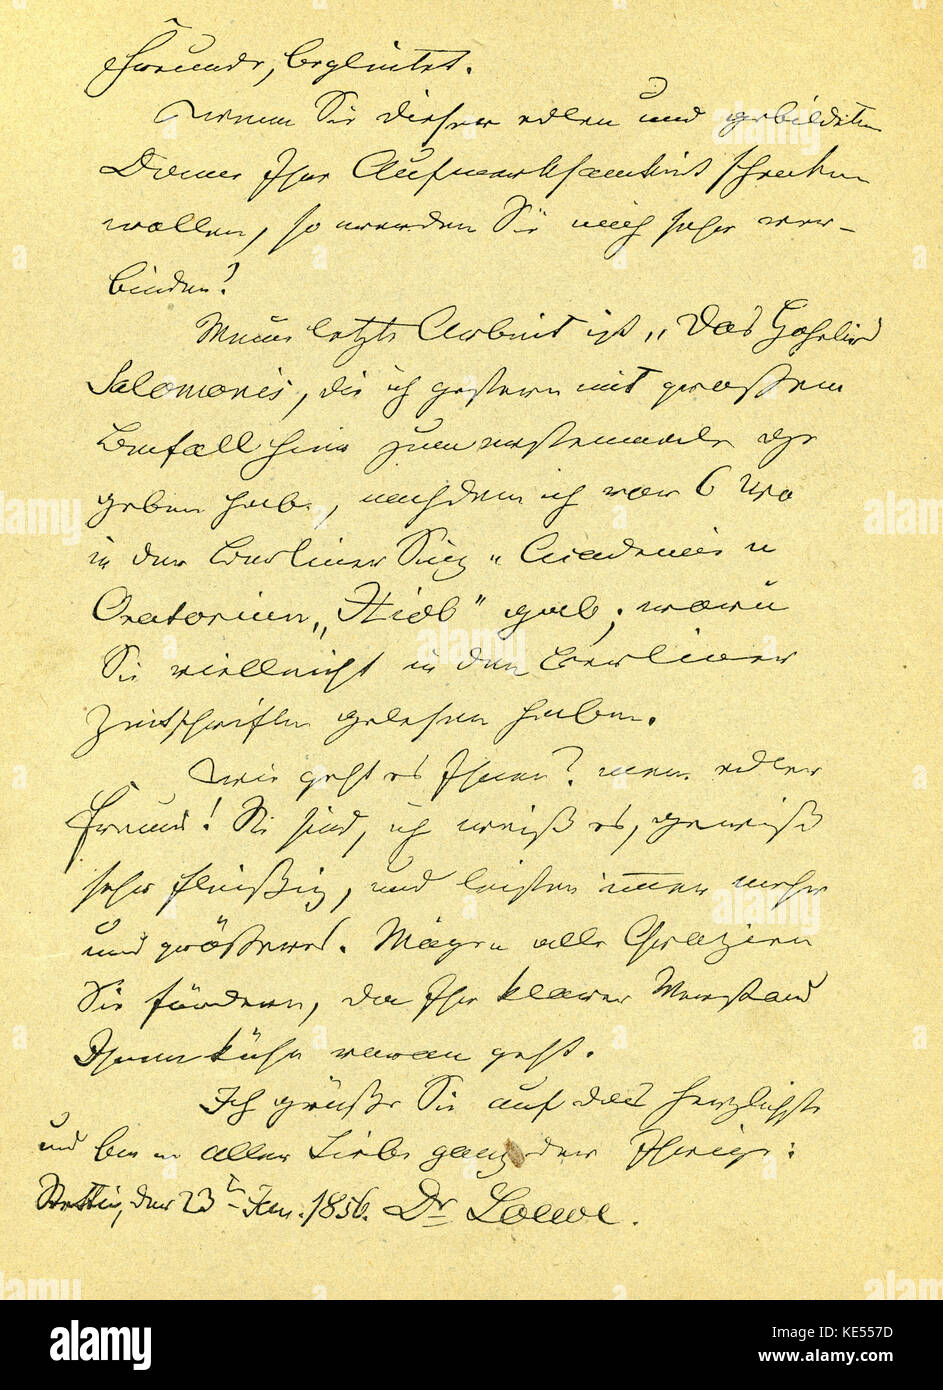 Freunde, begleitet.
Wenn Sie dieser edlen und gebildeten
Dame Ihre Aufmerksamkeit schenken
wollen, so werden Sie mich sehr ver-
binden!
Meine letzte Arbeit ist „Das Hohelied
Salomonis, die ich gestern mit großem
Beifall hier zum erstenmale ge
geben habe, nachdem ich vor 6 Wo
in der Berliner Sing-Academie
Oratorium „Hiob" gab,
Sie vielleicht in den Berliner
Zeitschriften gelesen haben.
Wie geht es Ihnen? mein edler
Freund! Sie sind, ich weiß es, gewiß
sehr fleißig, und leisten immer mehr
und größeres. Mögen alle Grazien
Sie fördern, da Ihr klarer Verstand
Ihnen kühn voran geht.
Ich grüße Sie auf das herzlichste
und bin in aller Liebe ganz der Ihrige:
Stettin, den 23t Jan. 1856. Dr Loewe.
alamy
Image ID: KE557D
www.alamy.com